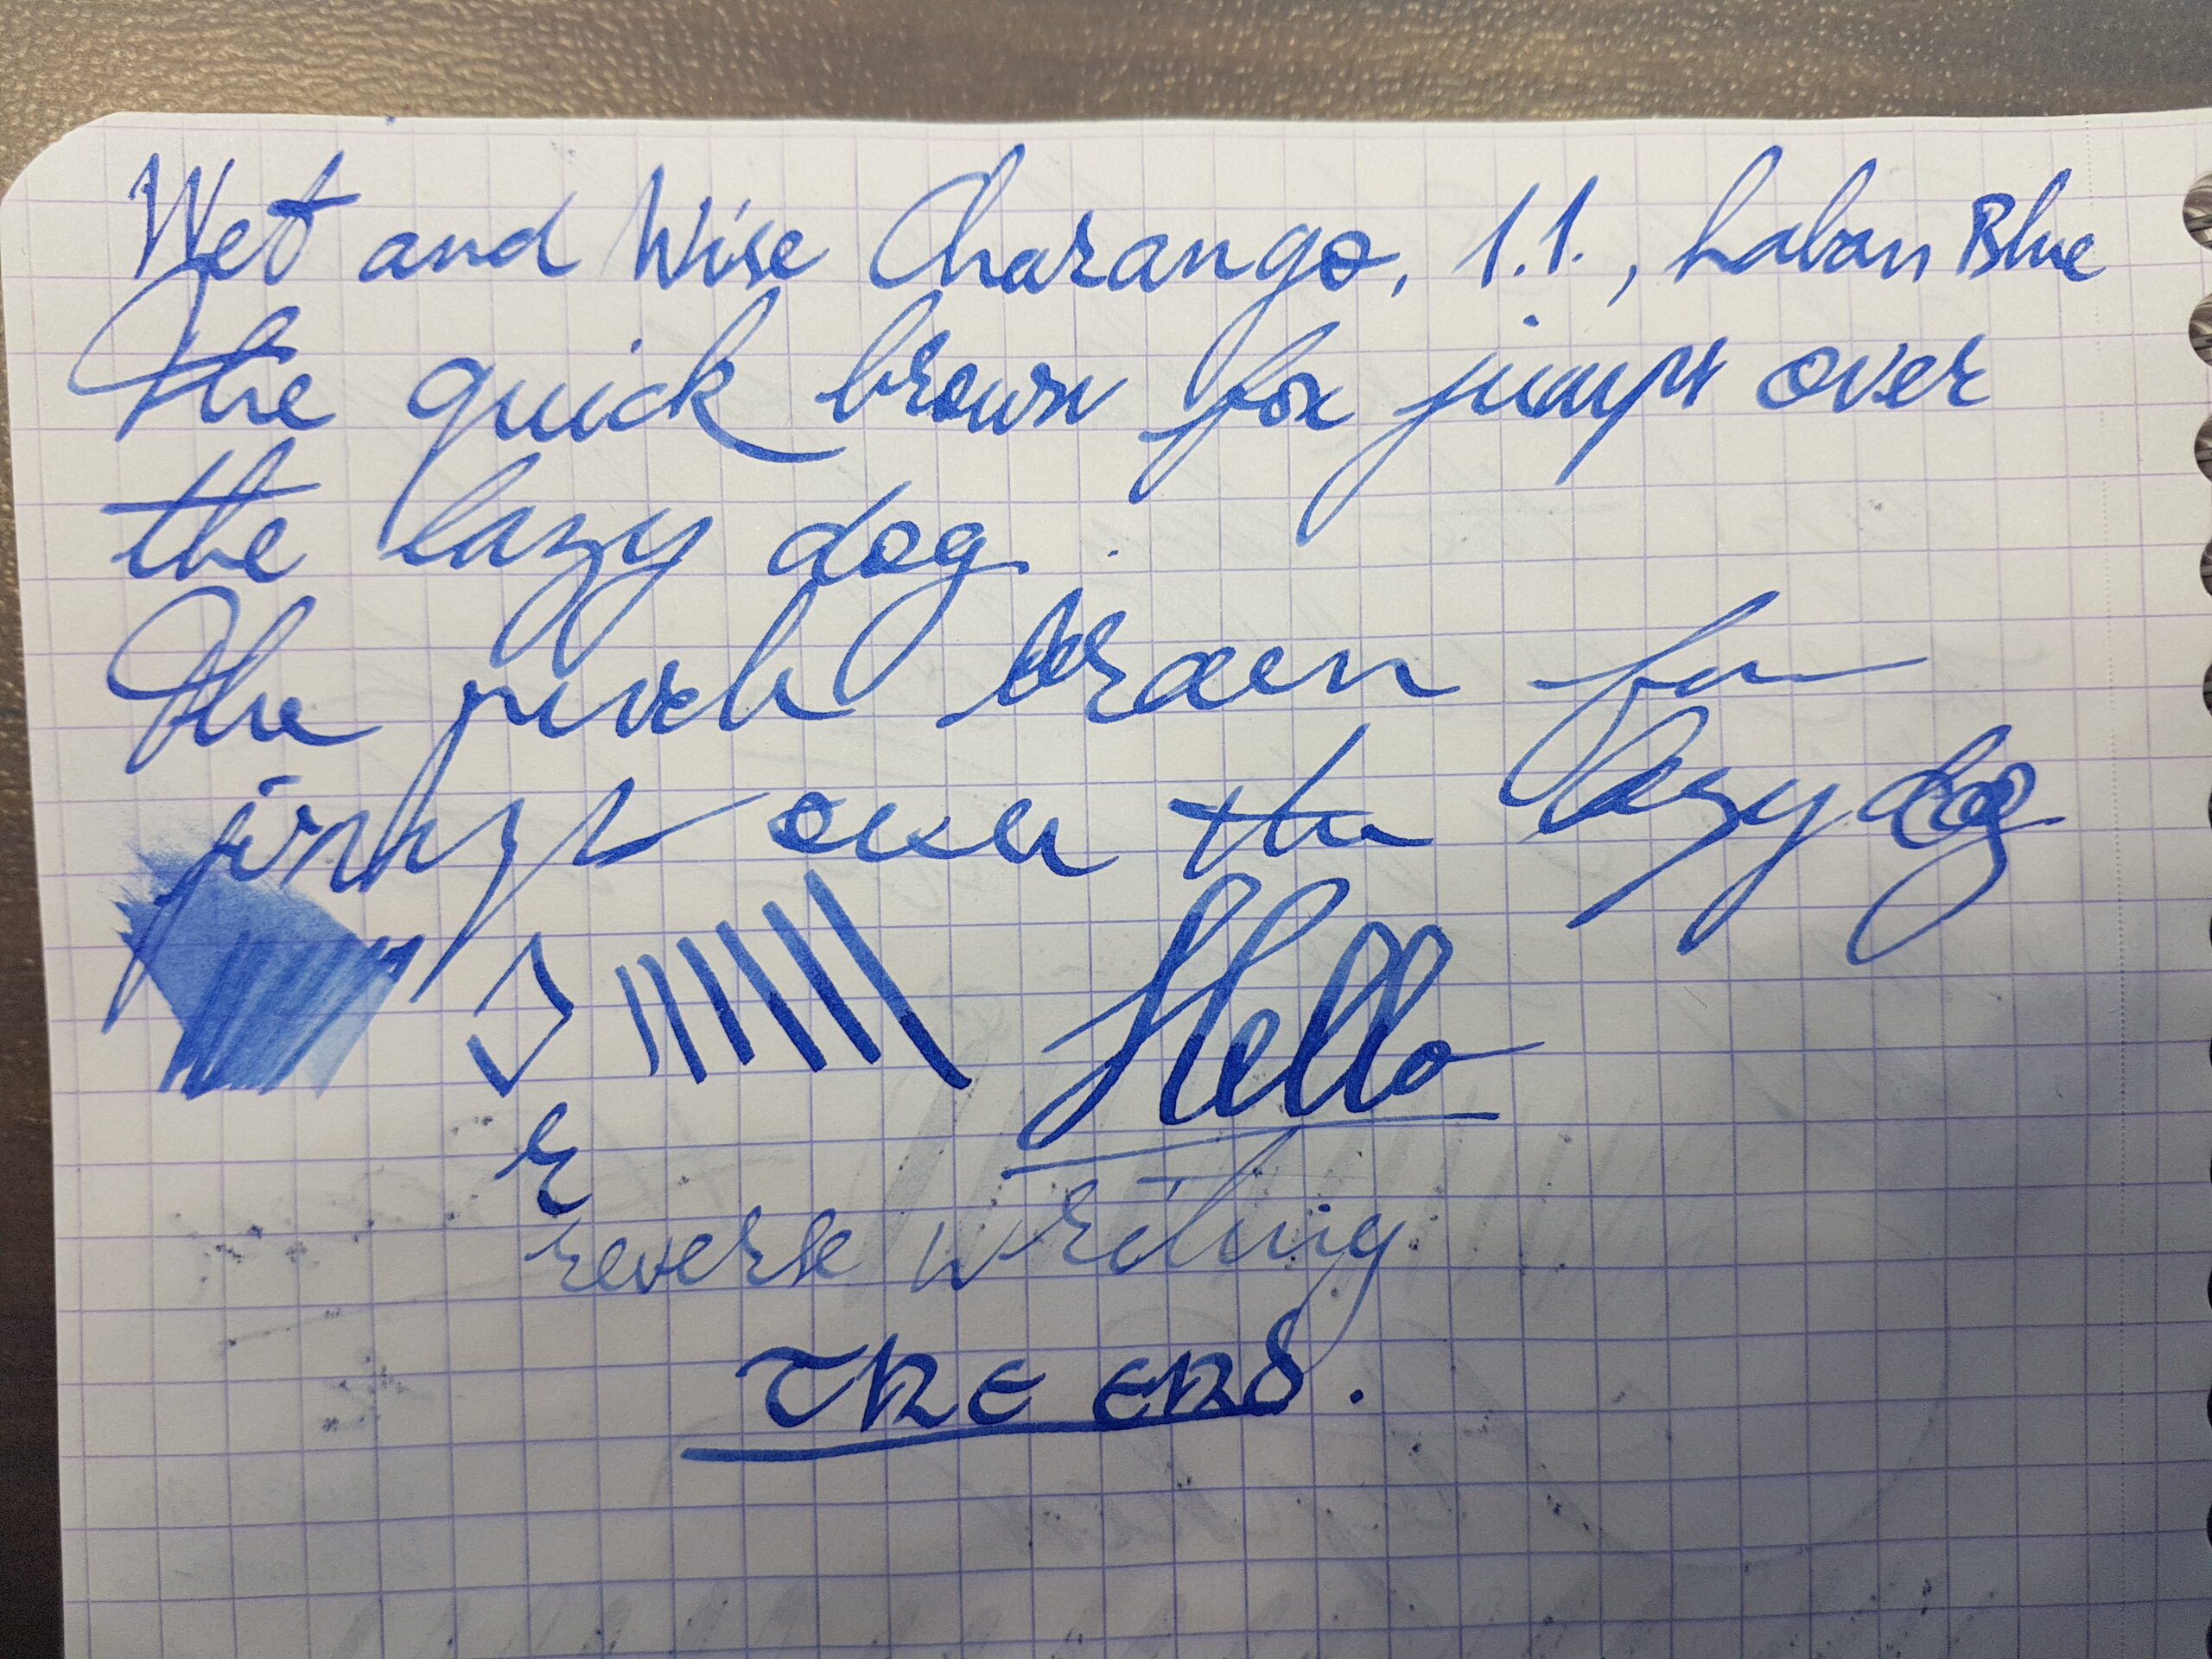 Wet and Wise Charango, 1.1., Laban Blue
The quick brown fox jumps over
the lazy dog.
The quick brown fox
jumps over the lazy dog
Hello
r
reverse writing
THE END.